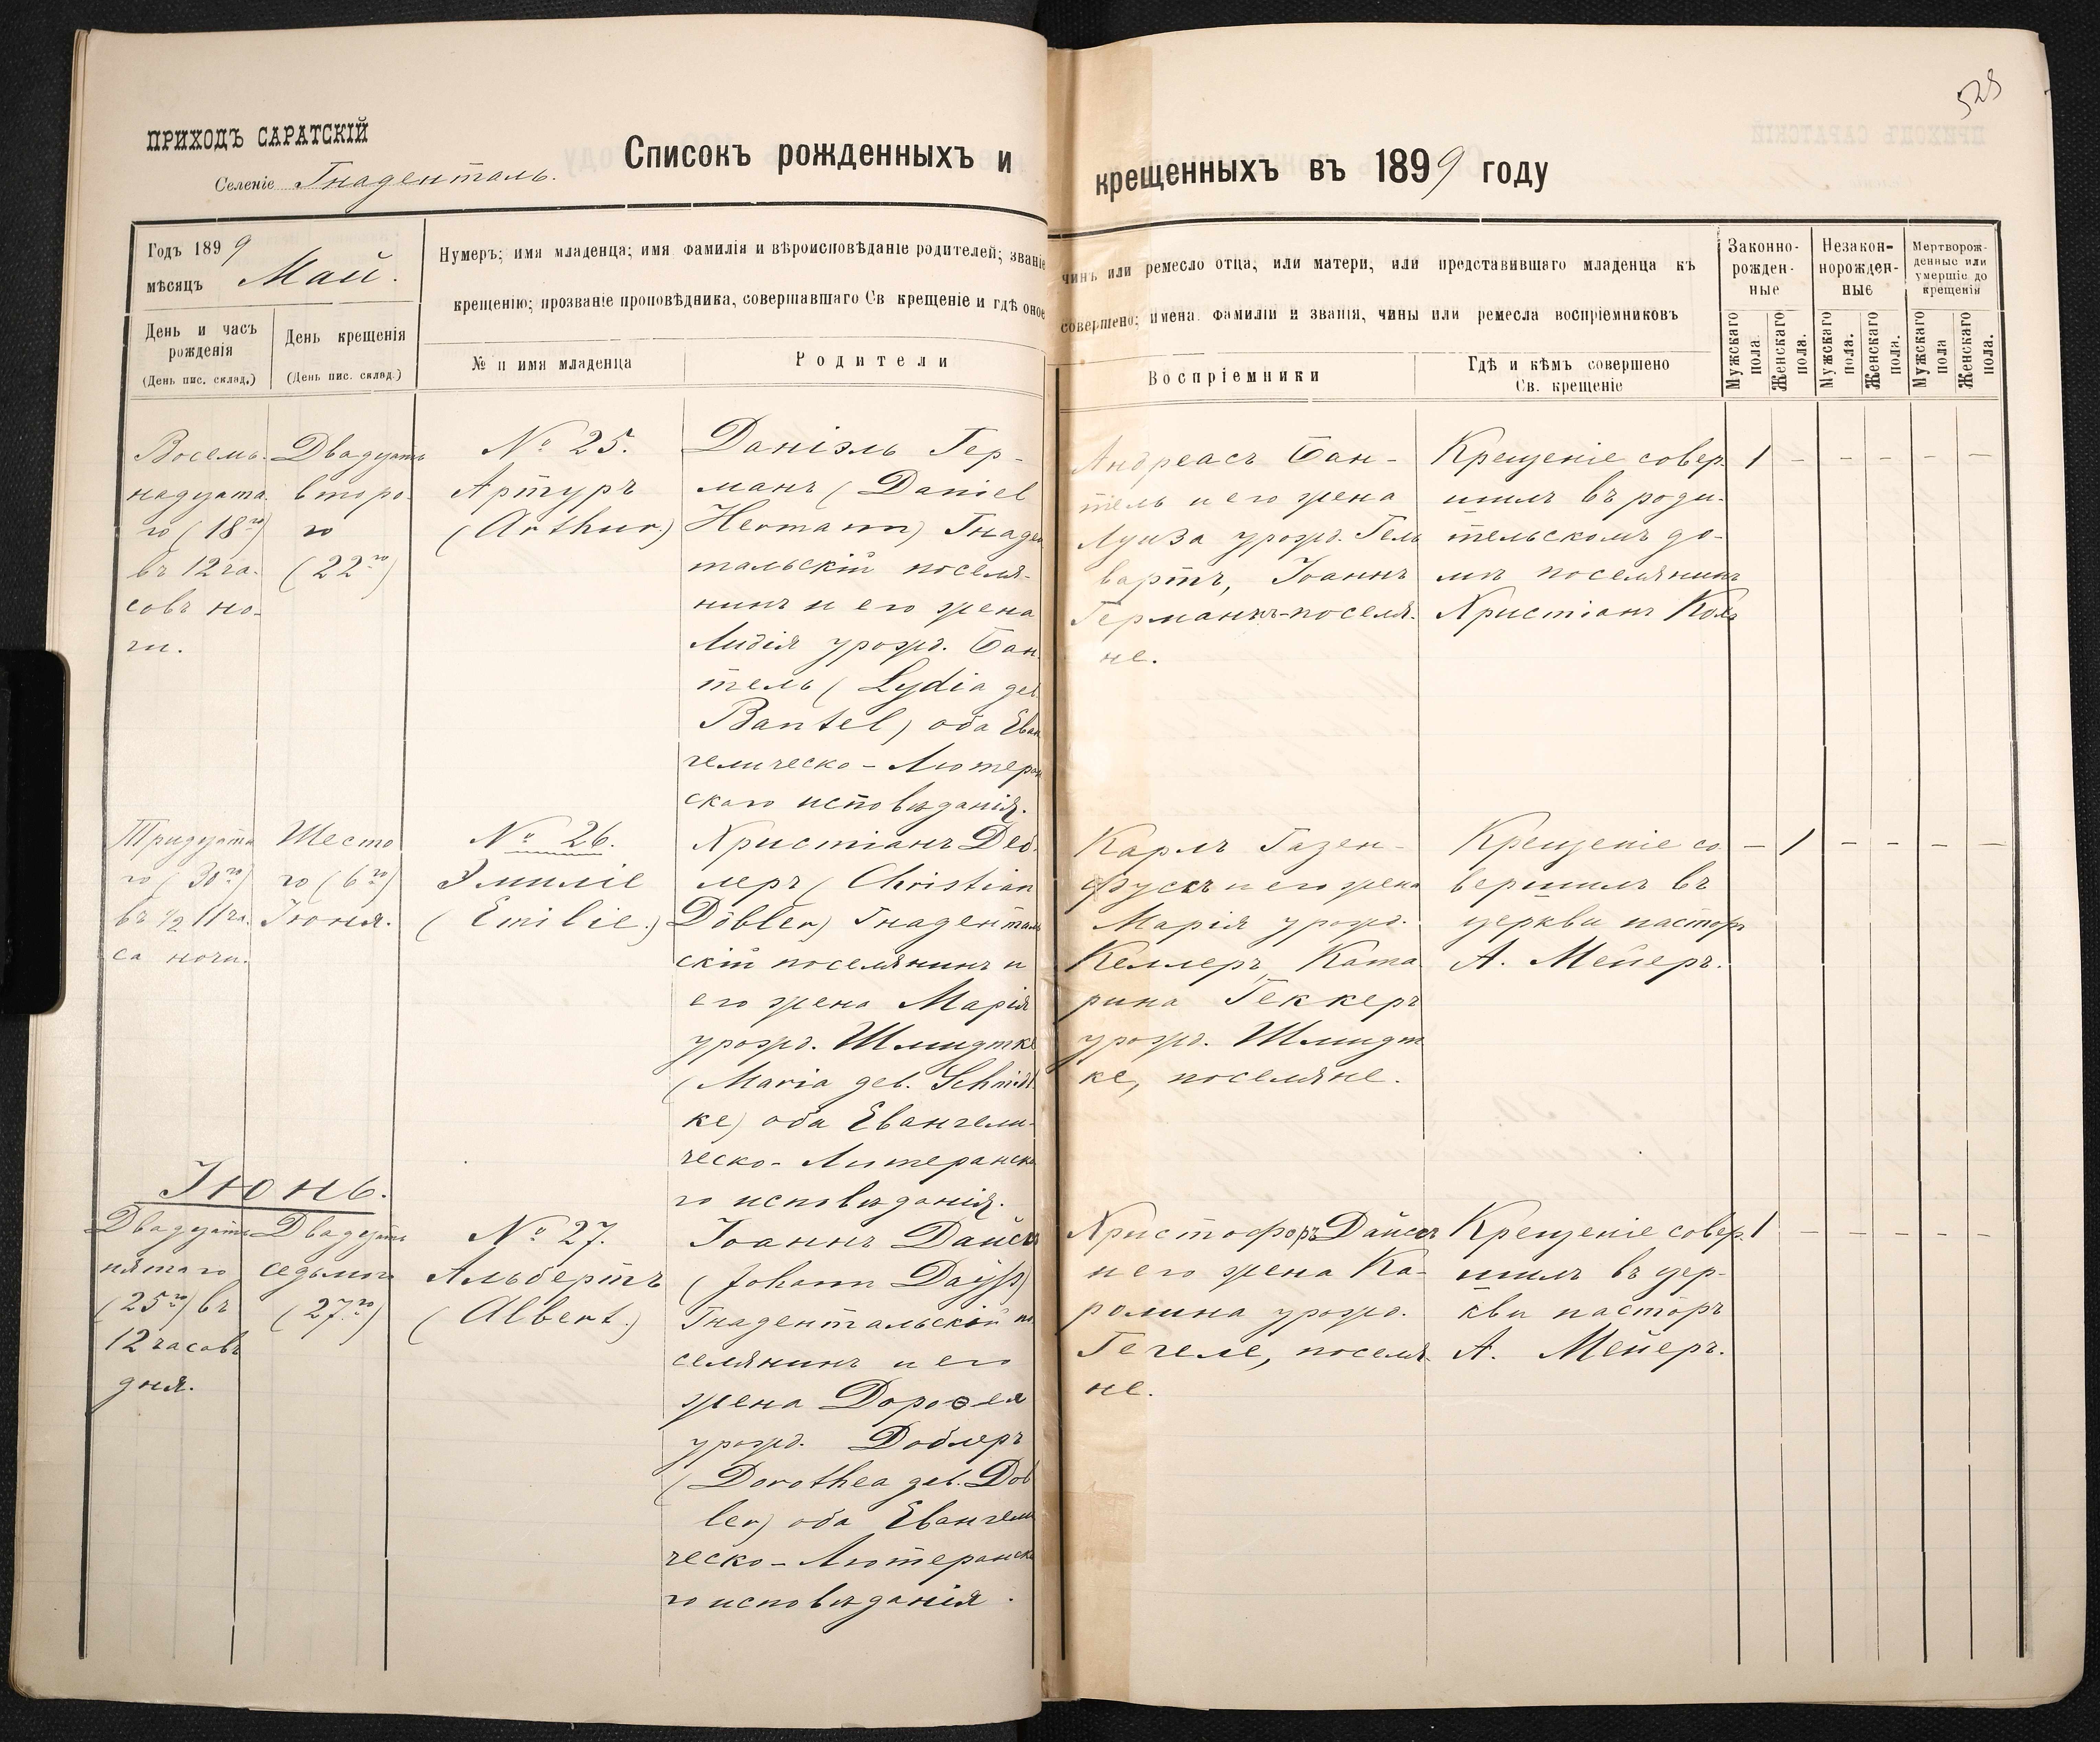 528
ПРИХОДЪ САРАТСКІЙ
Селеніе Гнаденталь.
Списокъ рожденныхъ и крещенныхъ въ 1899 году
Годъ 1899
мѣсяцъ Май.
День и часъ
рожденія
(День пис. склад.)
День крещенія
(День пис. склад.)
Нумеръ; имя младенца; имя фамилія и вѣроисповѣданіе родителей; званіе
чинъ или ремесло отца, или матери, или представившаго младенца къ
крещенію; прозваніе проповѣдника, совершавшаго Св крещеніе и гдѣ оное
совершено; имена фамиліи и званія, чины или ремесла воспріемниковъ
№ и имя младенца
Родители
Воспріемники
Гдѣ и кѣмъ совершено
Св. крещеніе
Законно-
рожден-
ные
Незакон-
норожден-
ные
Мертворож-
денные или
умершіе до
крещенія
Мужскаго
пола
Женскаго
пола.
Мужскаго
пола.
Женскаго
пола.
Мужскаго
пола
Женскаго
пола.
Восемь-
надцата-
го (18го)
въ 12 ча-
совъ но-
чи.
Двадцать
второ-
го
(22го)
№ 25.
Артуръ
(Arthur.)
Даніэль Гер-
манъ (Daniel
Hermann) Гнаден
тальскій поселя-
нинъ и его жена
Лидія урожд. Бан-
тель (Lydia geb.
Bantel) оба Еван
гелическо-Лютеран
скаго исповѣданія.
Андреасъ Бан-
тель и его жена
Луиза урожд. Гель
вартъ, Іоаннъ
Германнъ-поселя-
не.
Крещеніе совер-
шилъ въ роди-
тельскомъ до-
мѣ поселянинъ
Христіанъ Кольб
1 - - - - -
Тридцата
го (30го)
въ 1/2 11 ча-
са ночи.
Шесто
го (6го)
Іюня.
№ 26.
Эмиліе
(Emilie.)
Христіанъ Деб-
леръ (Christian
Döbler) Гнаденталь
скій поселянинъ и
его жена Марія
урожд. Шмидтке
(Maria geb. Schmidt
ke) оба Евангели-
ческо-Лютеранска
го исповѣданія.
Карлъ Газен-
фусъ и его жена
Марія урожд.
Келлеръ, Ката-
рина Геккеръ
урожд. Шмидт
ке, поселяне.
Крещеніе со-
вершилъ въ
церкви пасторъ
А. Мейеръ.
- 1 - - - -
Іюнь.
Двадцать
пятаго
(25го) въ
12 часовъ
дня.
Двадцать
седьмого
(27го)
№ 27.
Альбертъ
(Albert.)
Іоаннъ Дайсъ
(Johann Dayß)
Гнадентальскій по
селянинъ и его
жена Дороѳея
урожд. Доблеръ
(Dorothea geb. Dob
ler) оба Евангели
ческо-Лютеранска
го исповѣданія.
Христофоръ Дайсъ
и его жена Ка-
ролина урожд.
Гегеле, поселя-
не.
Крещеніе совер-
шилъ въ цер-
кви пасторъ
А. Мейеръ.
1 - - - - -